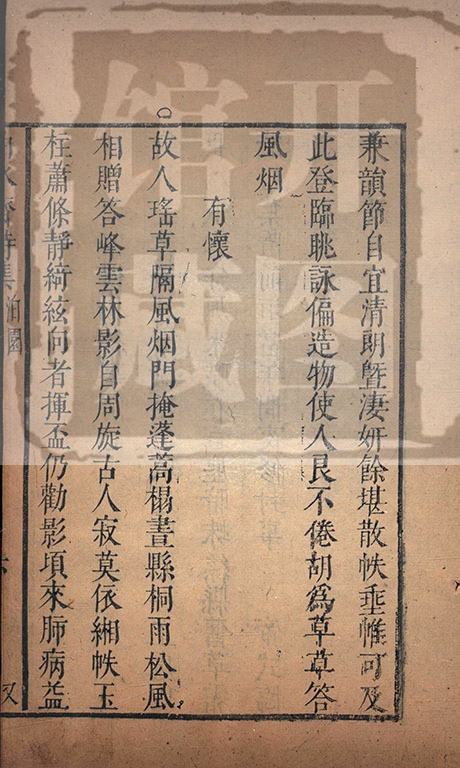 兼韻節自宜清朗暨淒妍餘堪散帙垂帷可及
此登臨眺詠偏造物使人艮不倦胡爲草草答
風烟
有懷
故人瑤草隔風烟門掩蓬蒿榻晝縣桐雨松風
相贈答峰雲林影自周旋古人寂莫依緗帙玉
柱蕭條靜綺絃向者揮盃仍勸影項來肺病益
開圖
館藏